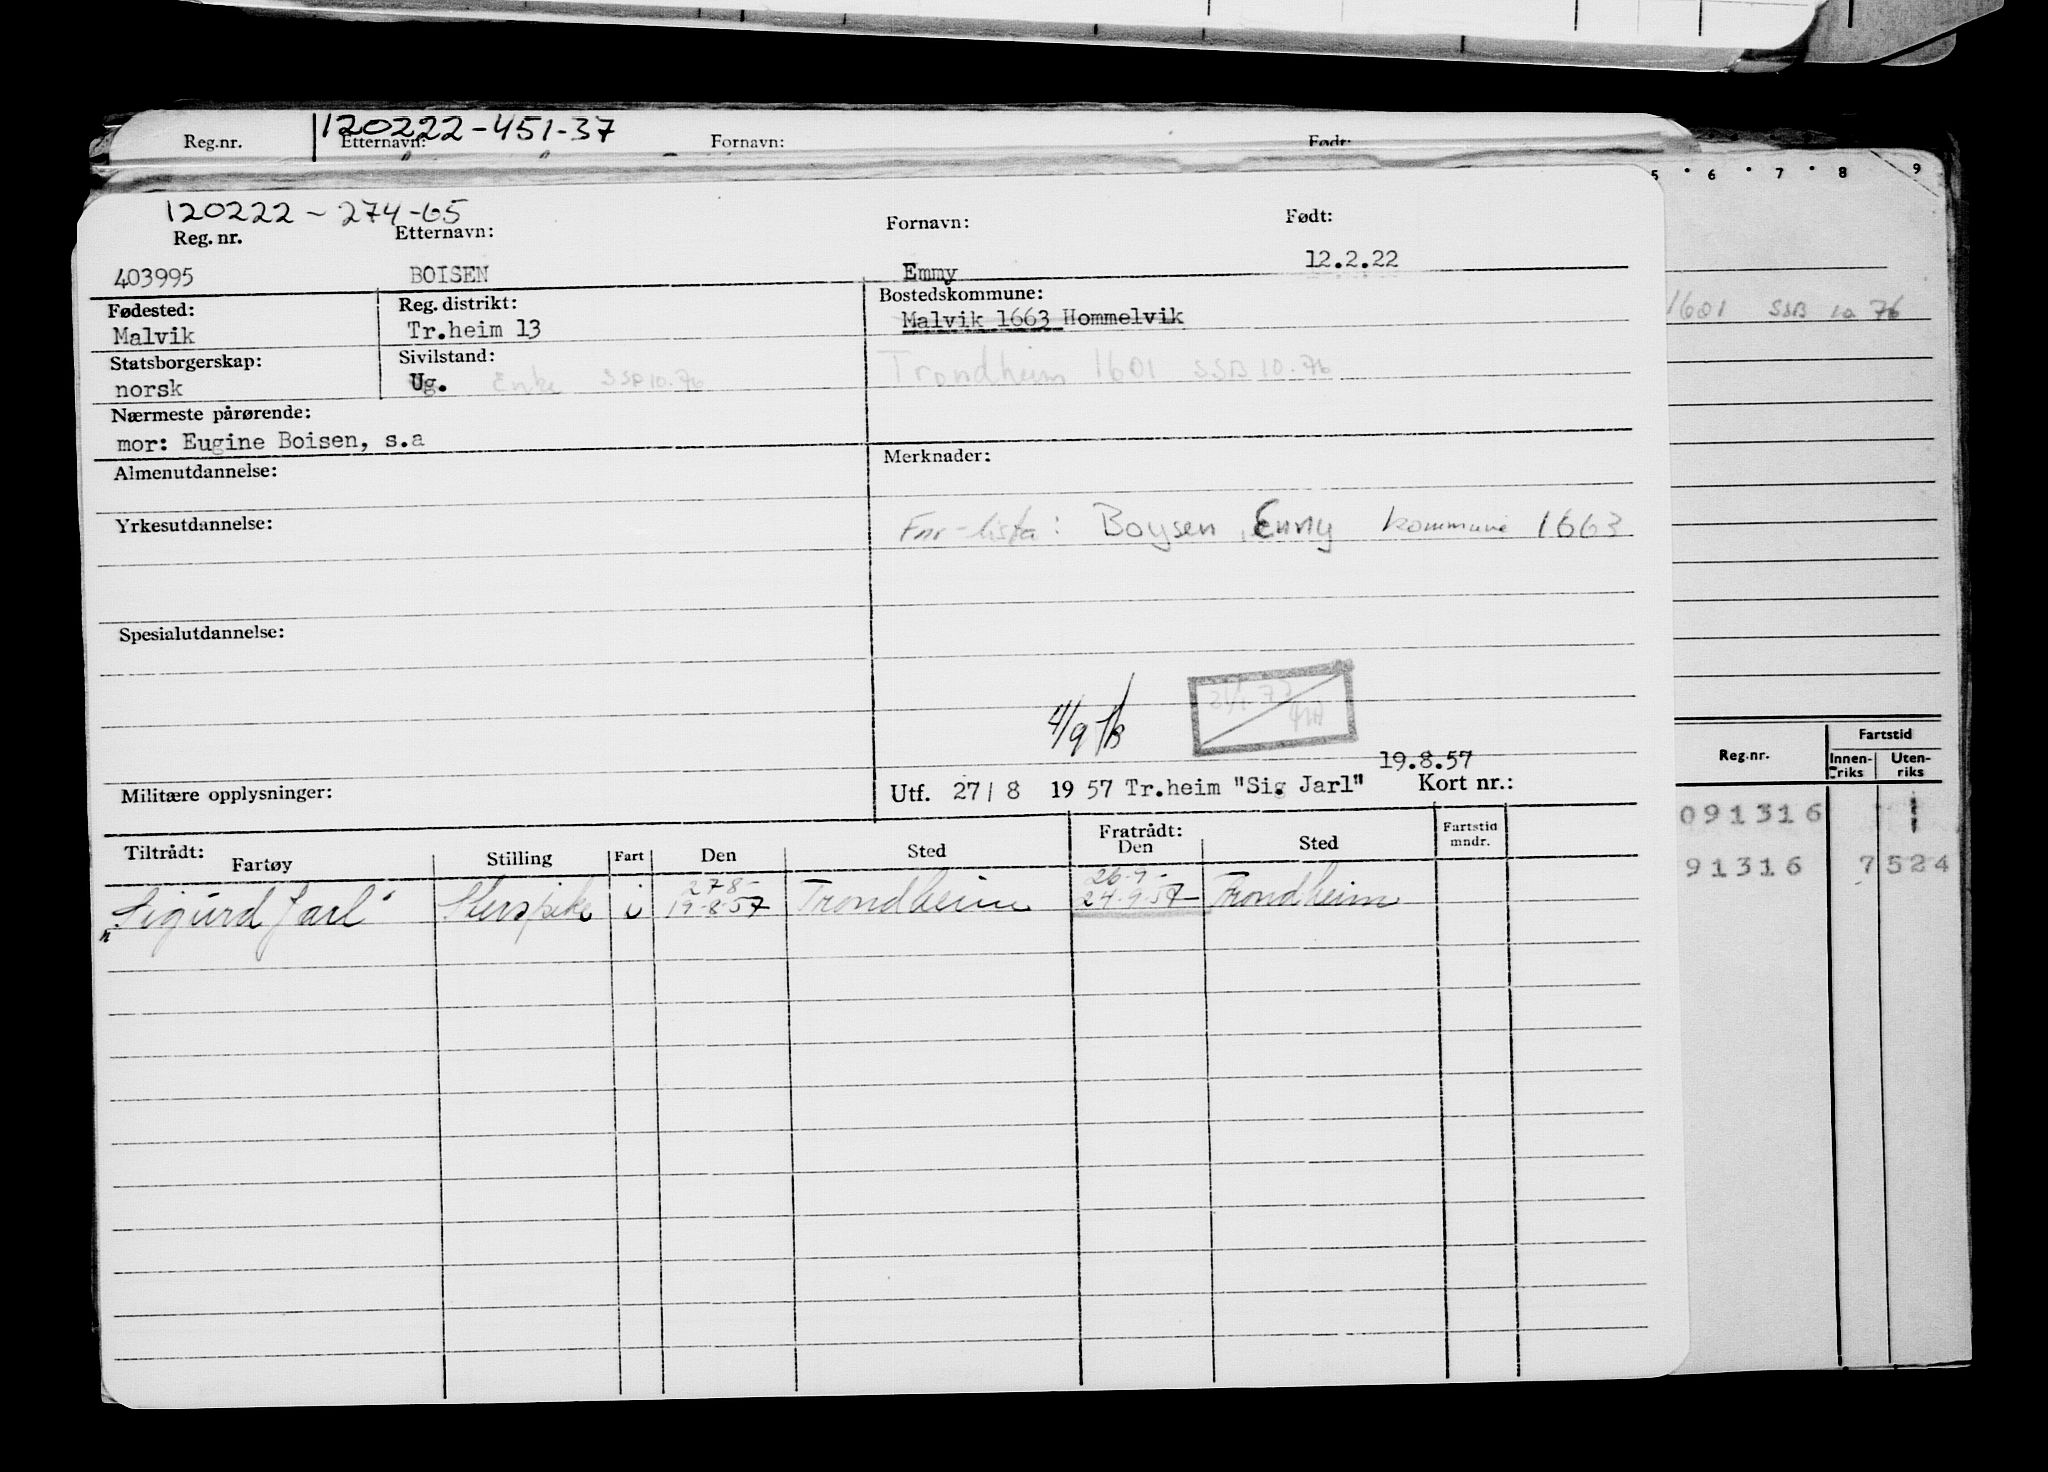 120222-451-37
Reg.nr. Etternavn: Fornavn: Født:
5 · 6 · 7 · 8 9
120222-274-65
Reg. nr. Etternavn: Fornavn: Født:
403995 BOISEN Emmy 12.2.22
Fødested: Reg. distrikt: Bostedskommune:
Malvik Tr.heim 13 Malvik 1663 Hommelvik
1601 SSB 10 76
Statsborgerskap: Sivilstand:
norsk Ug. Enke SSB 10.76 Trondheim 1601 SSB 10.76
Nærmeste pårørende:
mor: Eugine Boisen, s.a
Almenutdannelse: Merknader:
Yrkesutdannelse:
Fnr-lista: Boysen, Emmy kommune 1663
Spesialutdannelse:
4/9
19.8.57
Militære opplysninger: Utf. 27/8 1957 Tr.heim "Sig Jarl" Kort nr.:
Reg.nr. Fartstid
Innenriks Utenriks
091316 1
91316 7 524
Tiltrådt: Fratrådt:
Fartøy Stilling Fart Den Sted Den Sted Fartstid mndr.
27 8- 26-9-
"Sigurd Jarl" i 19-8-57 Trondheim 24-9-57- Trondheim